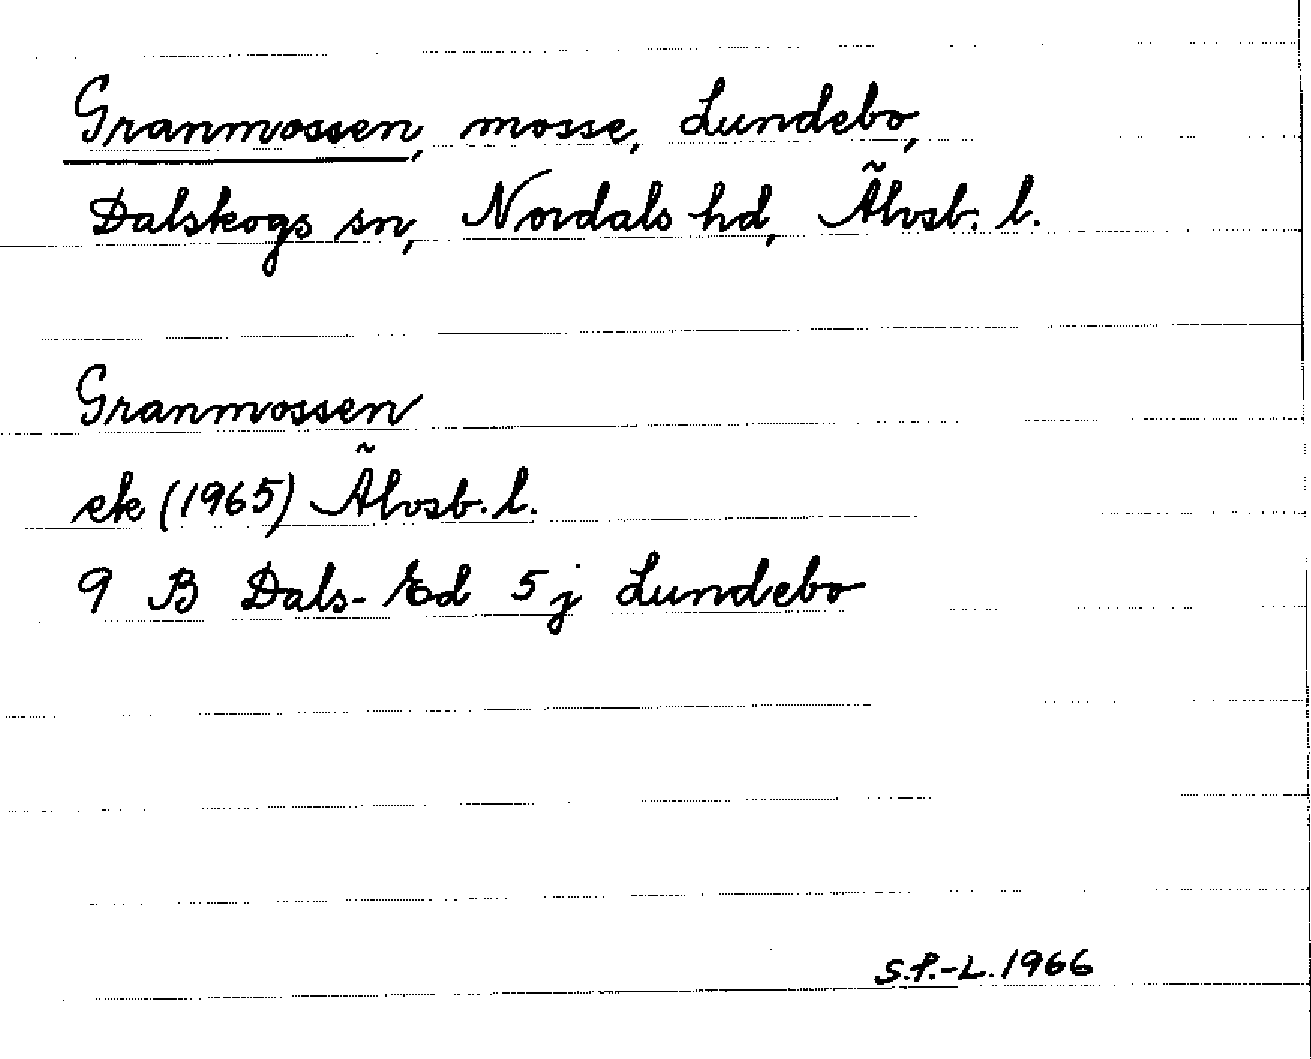 Granmossen, mosse, Lundebo,
Dalskogs sn, Nordals hd, Älvsb. l.
Granmossen
ek (1965) Älvsb. l.
9 B Dals-Ed 5 j Lundebo
S.P.-L. 1966